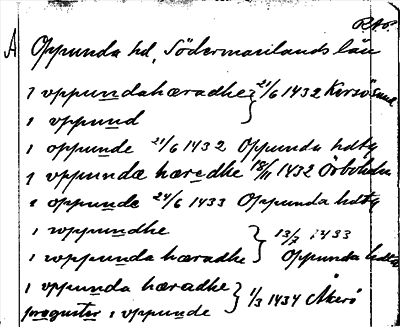 RAP.
A Oppunda hd, Södermanlands län
i vppundahæradhe } 21/6 1432 Kersösund
i vppund
i oppunde 21/6 1432 Oppunda hdtg
i vppundæ hæredhe 18/11 1432 Örboholm
i oppunde 24/6 1433 Oppunda hdtg
i wppundhe } 13/7 1433
i wppunda hæradhe } Oppunda hdtg
i vppunda hæradhe } 1/3 1434 Åkerö
prequster i vppunde